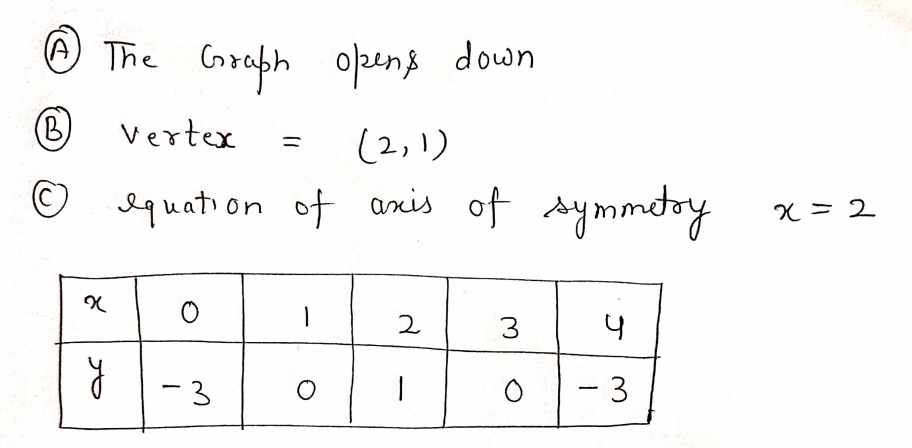 Ⓐ The Graph opens down
Ⓑ vertex = (2,1)
Ⓒ equation of axis of symmetry x = 2
x 0 1 2 3 4
y -3 0 1 0 -3